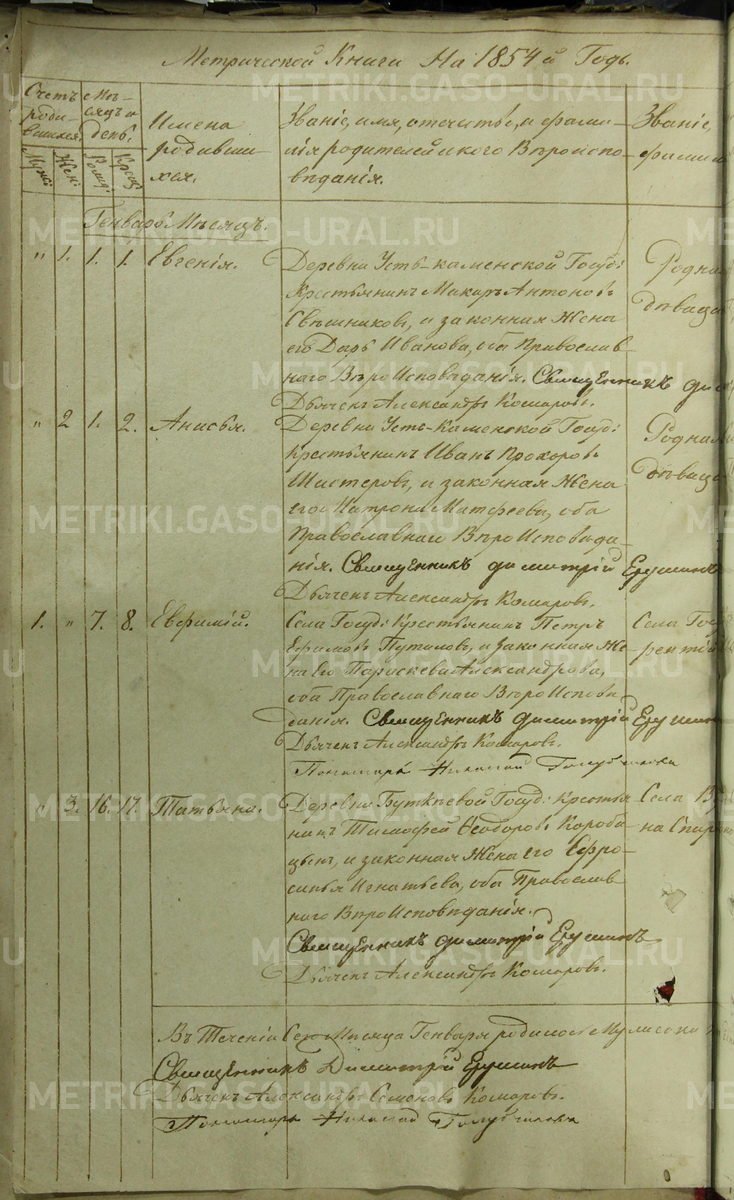 Метрической Книги На 1854й Годъ.
Счетъ родившихся.
Муж:
Жен:
Мѣсяцъ и день.
Рожд:
Крещ:
Имена родившихся.
Званіе, имя, отечество, и фами-
лія родителей и кого Вѣроиспо-
вѣданія.
Званіе,
фамил
Генварь Мѣсяцъ.
" 1. 1. 1. Евгенія.
Деревни Усть-каменской Госуд:
Крестьянинъ Макаръ Антоновъ
Свѣшниковъ, и законная Жена
его Дарья Иванова, оба Православ
наго ВѣроИсповѣданія. Священникъ дим
Дьячекъ Александръ Комаровъ.
Родила
дѣвица
" 2 1. 2. Анисья.
Деревни Усть-каменской Госуд:
крестьянинъ Иванъ Прохоровъ
и законная Жена
его Матрона Матфеева, оба
Православнаго ВѣроИсповѣда-
нія. Священникъ димитрій Ершинъ
Дьячекъ Александръ Комаровъ.
Родная
дѣвица
1. " 7. 8. Евфимій.
Села Госуд: Крестьянинъ Петръ
Ефимовъ Путиловъ, и законная Же-
на его Параскева Александрова,
оба Православнаго ВѣроИсповѣ
данія. Священникъ димитрій
Дьячекъ Александръ Комаровъ.
Пономарь Николай
Села Госу
" 3. 16. 17. Татьяна.
Деревни Буткѣевой Госуд: Крестья
нинъ Тимофей Ѳеодоровъ Короба
цынъ, и законная Жена его Ефро-
синья Игнатьева, оба Православ
наго ВѣроИсповѣданія.
Священникъ димитрій
Дьячекъ Александръ Комаровъ.
Села
на
Въ Теченіи Сего Мѣсяца Генваря родилось Мужеска
Священникъ Димитрій
Дьячекъ Александръ Семеновъ Комаровъ.
Пономарь Николай
METRIKI.GASO-URAL.RU